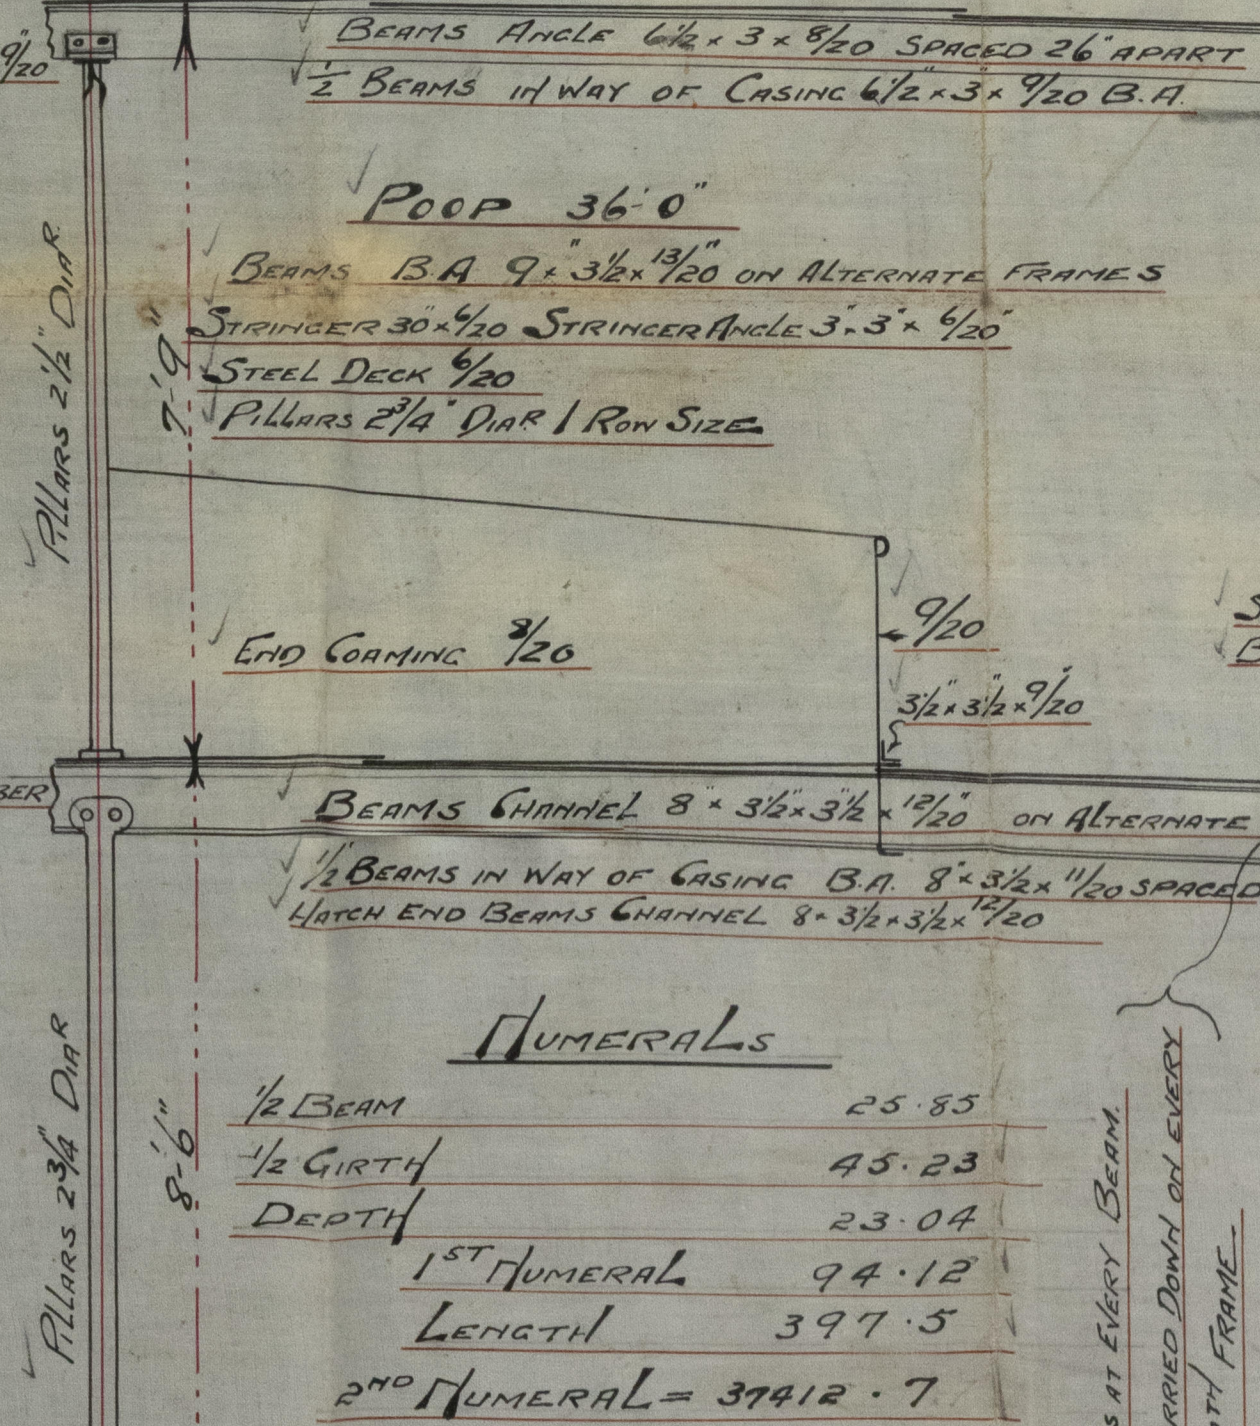 BEAMS ANGLE 6½ × 3 × 8/20 SPACED 26" APART
9/20"
½ BEAMS IN WAY OF CASING 6½" × 3" × 9/20 B.A.
POOP 36'-0"
BEAMS B.A 9 × 3½" × 13/20" ON ALTERNATE FRAMES
STRINGER 30" × 6/20 STRINGER ANGLE 3" × 3" × 6/20"
STEEL DECK 6/20
PILLARS 2¾" DIAR 1 ROW SIZE
PILLARS 2½" DIAR
7'-9"
END COAMING 8/20
9/20
3½" × 3½" × 9/20"
BER
BEAMS CHANNEL 8" × 3½" × 3½" × 12/20" ON ALTERNATE
½ BEAMS IN WAY OF CASING B.A. 8" × 3½ × 11/20 SPACED
HATCH END BEAMS CHANNEL 8 × 3½ × 3½ × 12/20
NUMERALS
½ BEAM 25.85
½ GIRTH 45.23
DEPTH 23.04
1ST NUMERAL 94.12
LENGTH 397.5
2ND NUMERAL = 37412.7
PILLARS 2¾" DIAR
8'-6"
S AT EVERY BEAM.
RRIED DOWN ON EVERY
TH FRAME